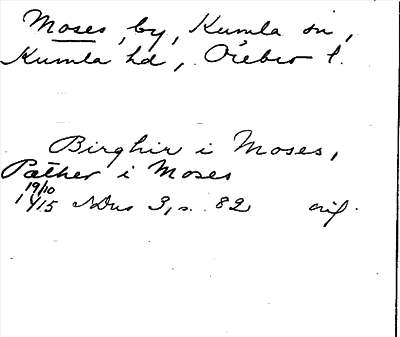 Moses, by, Kumla sn,
Kumla hd, Örebro l.
Birghir i Moses,
Pæther i Moses
19/10
1415 SDns 3, s. 82 orig.